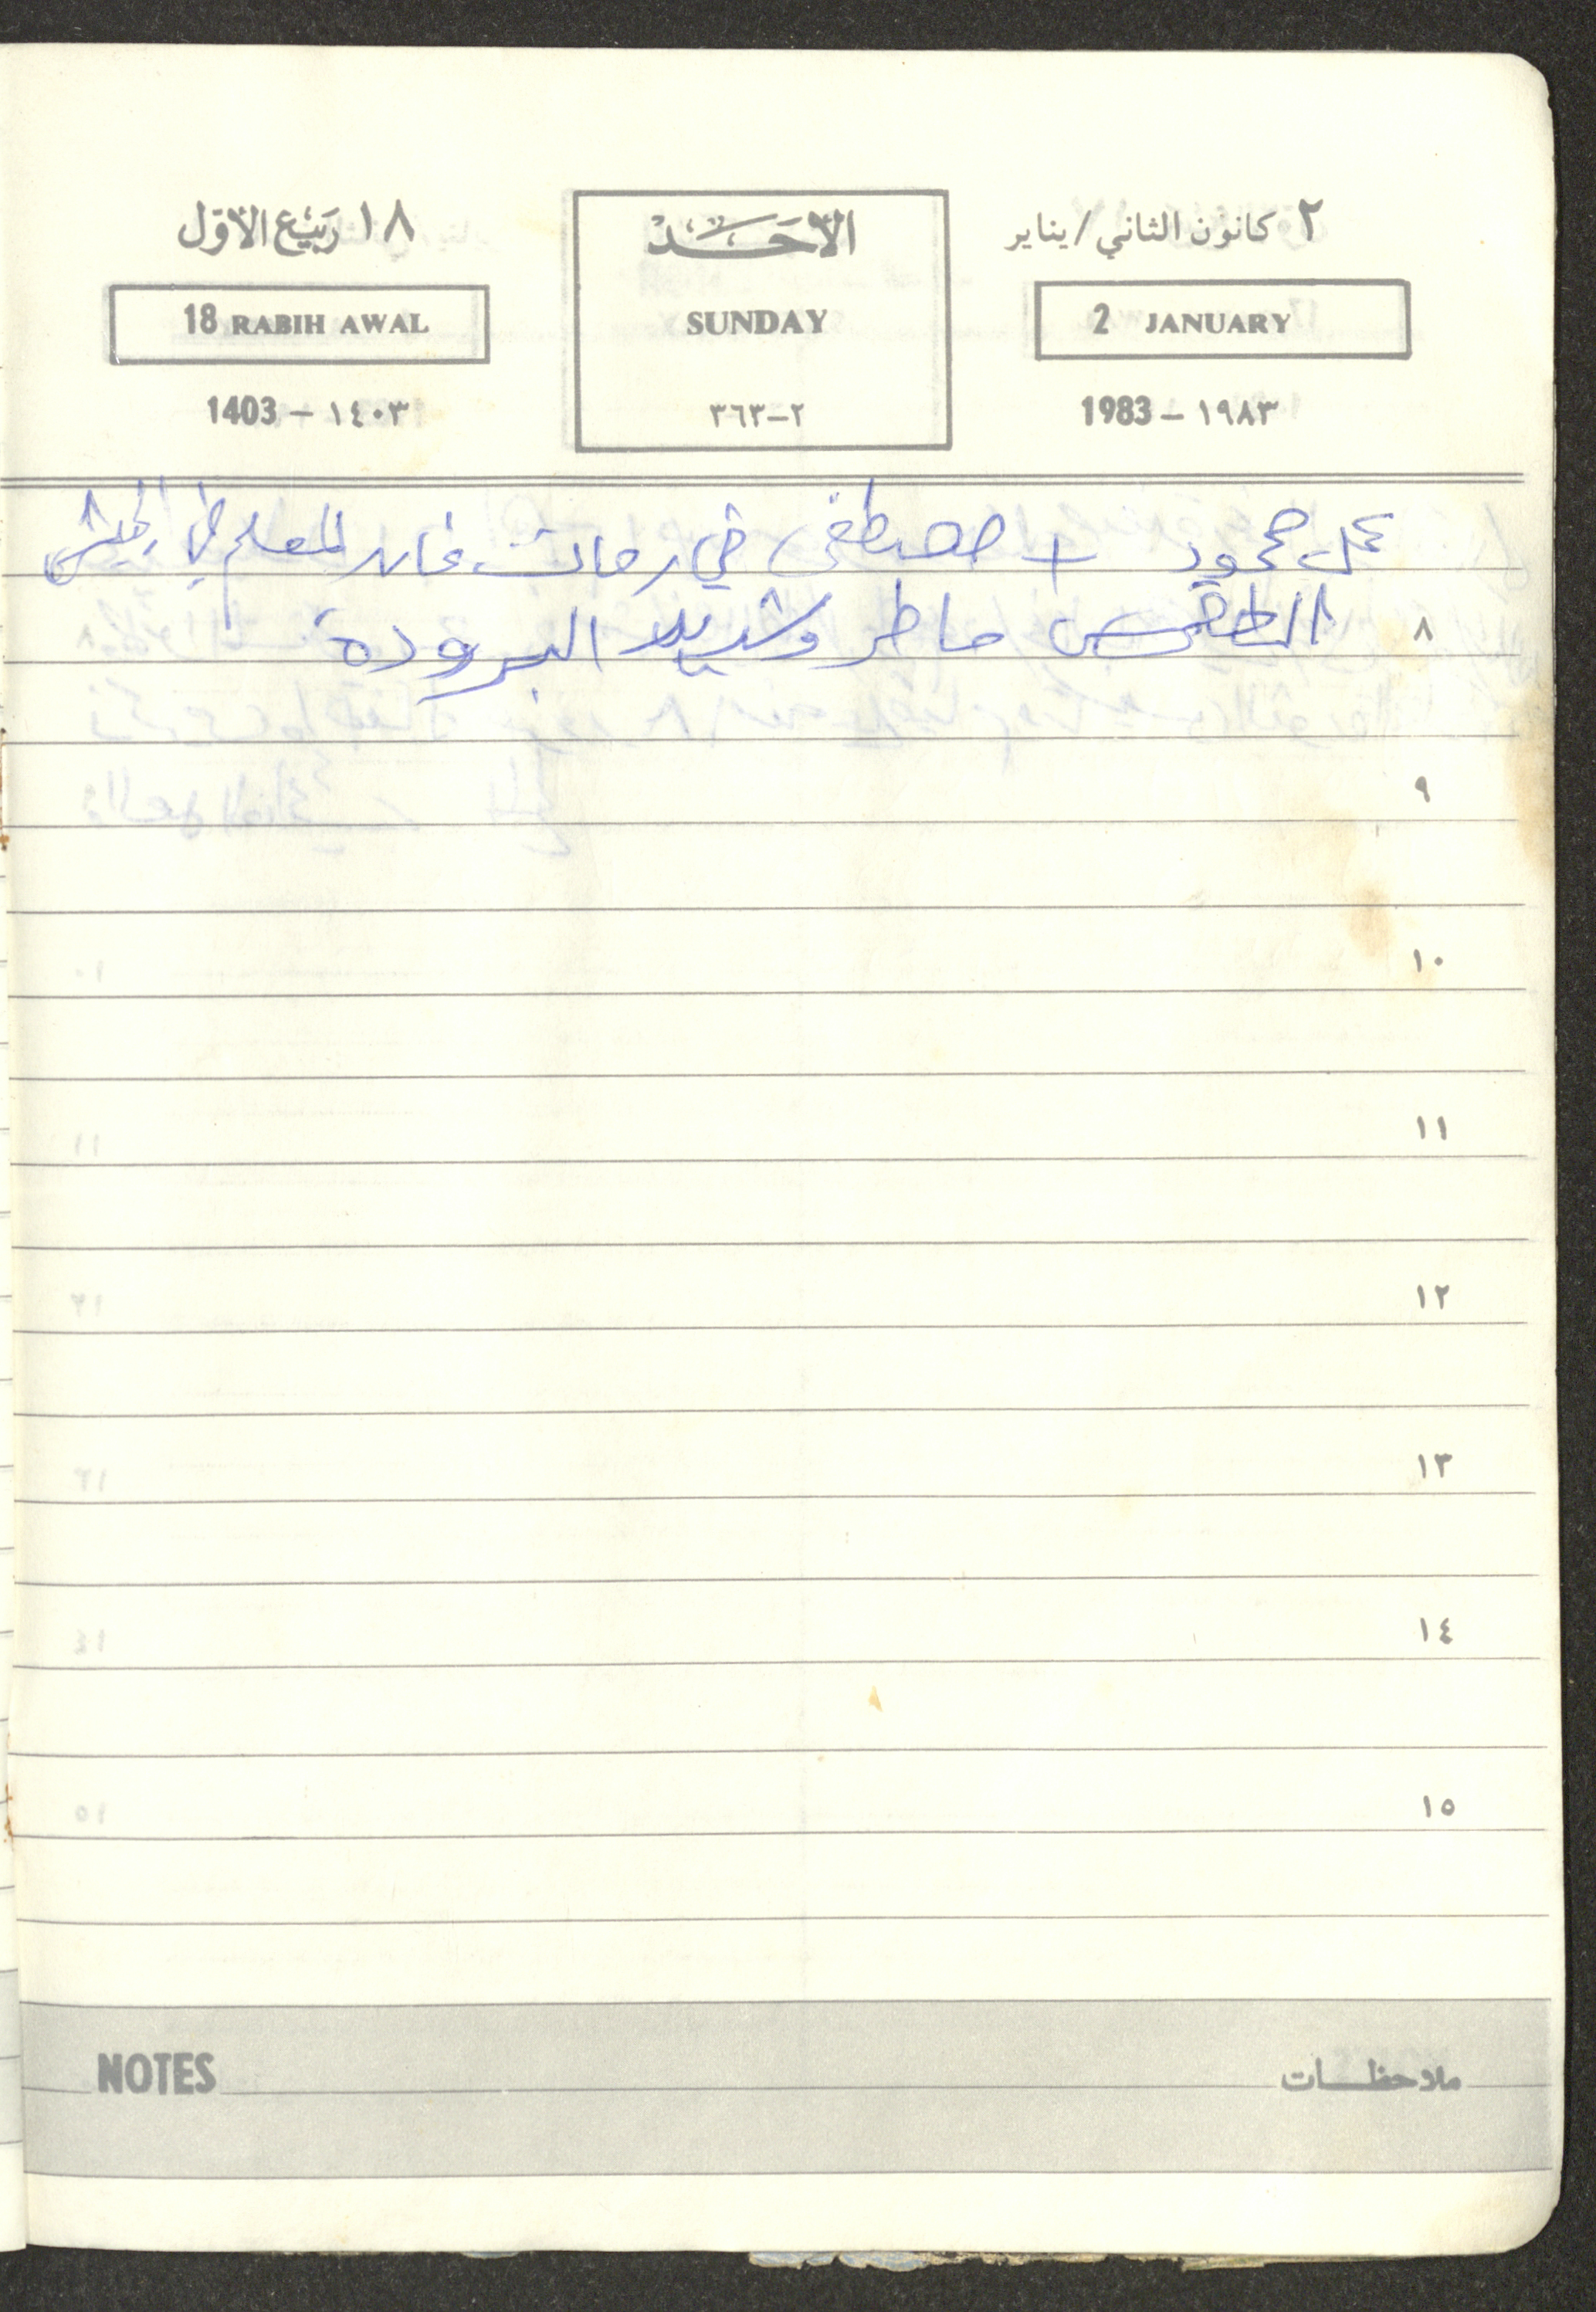 ٢ كانون الثاني/يناير الأحد ١٨ ربيع الأول
2 JANUARY SUNDAY 18 RABIH AWAL
1983 – ١٩٨٣ ٢–٣٦٣ 1403 – ١٤٠٣
عمل محمود + مصطفى في
الطقس ماطر وشديد البرودة
٨
٩
١٠
١١
١٢
١٣
١٤
١٥
NOTES ملاحظات